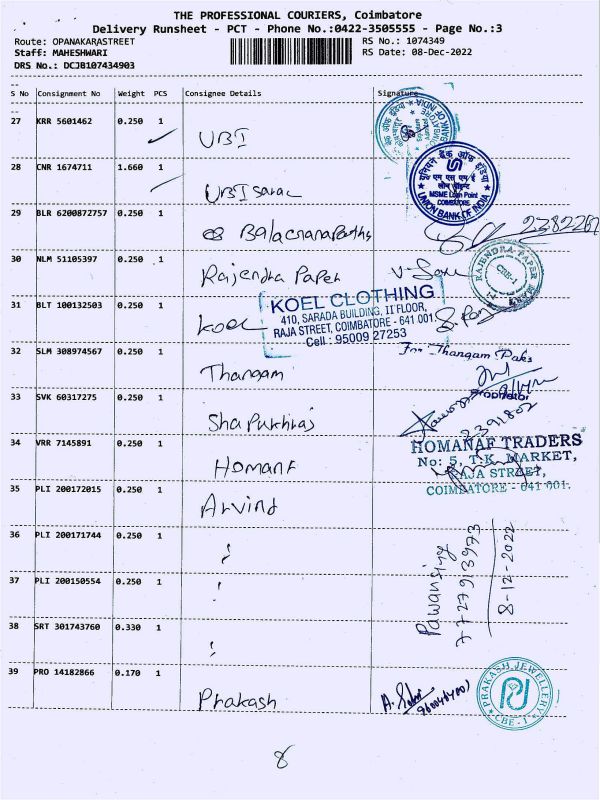 THE PROFESSIONAL COURIERS, Coimbatore
Delivery Runsheet - PCT - Phone No.:0422-3505555 - Page No.:3
Route: OPANAKARASTREET RS No.: 1074349
Staff: MAHESHWARI RS Date: 08-Dec-2022
DRS No.: DCJB107434903
S No Consignment No Weight PCS Consignee Details Signature
27 KRR 5601462 0.250 1 UBI
28 CNR 1674711 1.660 1 UBI Sarac
यूनियन बैंक ऑफ इंडिया
एम एस एम ई
लोन पॉइन्ट
MSME Loan Point
COIMBATORE
UNION BANK OF INDIA
29 BLR 6200872757 0.250 1
30 NLM 51105397 0.250 1 Rajendra Paper
RAJENDRA PAPER MART
CBE-1
31 BLT 100132503 0.250 1 Koel
KOEL CLOTHING
410, SARADA BUILDING, II FLOOR,
RAJA STREET, COIMBATORE - 641 001.
Cell : 95009 27253
32 SLM 308974567 0.250 1 Thangam
For Thangam Paks
Proprietor
33 SVK 60317275 0.250 1
34 VRR 7145891 0.250 1 Homanf
HOMANAF TRADERS
No: 5, T.K. MARKET,
RAJA STREET,
COIMBATORE - 641 001.
35 PLI 200172015 0.250 1 Arvind
36 PLI 200171744 0.250 1
37 PLI 200150554 0.250 1
Pawansing
7727913973
8-12-2022
38 SRT 301743760 0.330 1
39 PRO 14182866 0.170 1 Prakash
PRAKASH JEWELLERY
CBE-1
8